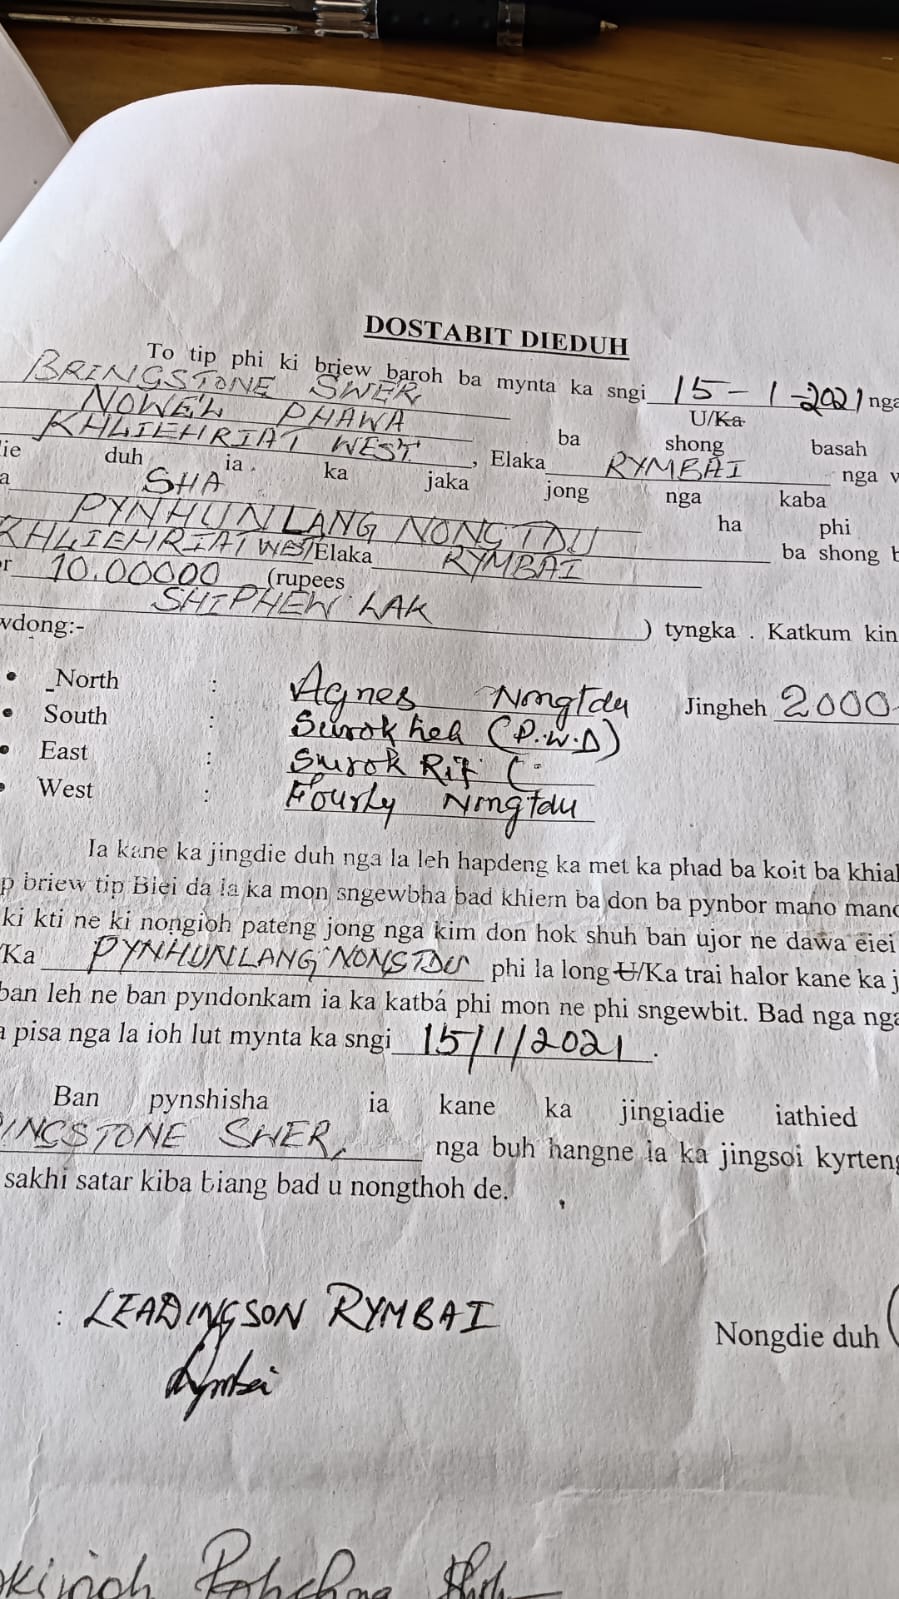 DOSTABIT DIEDUH
To tip phi ki briew baroh ba mynta ka sngi 15-1-2021 nga
BRINGSTONE SWER
U/Ka
NOWELL PHAWA
ba shong basah
KHLIEHRIAT WEST, Elaka RYMBAI nga
die duh ia ka jaka jong nga kaba
SHA
ha phi
PYNHUNLANG NONGTDU
ba shong
KHLIEHRIAT WEST Elaka RYMBAI
10.00000 (rupees
SHIPHEW LAK
) tyngka . Katkum kin
wdong:-
• North : Agnes Nongtdu Jingheh 2000
• South : Surok heh (P.W.D)
• East : Surok Rit (
• West : Fourly Nongtdu
Ia kane ka jingdie duh nga la leh hapdeng ka met ka phad ba koit ba khiah
p briew tip Blei da la ka mon sngewbha bad khlem ba don ba pynbor mano mano
ki kti ne ki nongioh pateng jong nga kim don hok shuh ban ujor ne dawa eiei
Ka PYNHUNLANG NONGTDU phi la long U/Ka trai halor kane ka j
ban leh ne ban pyndonkam ia ka katba phi mon ne phi sngewbit. Bad nga nga
a pisa nga la ioh lut mynta ka sngi 15/1/2021.
Ban pynshisha ia kane ka jingiadie iathied
INGSTONE SWER, nga buh hangne ia ka jingsoi kyrteng
sakhi satar kiba biang bad u nongthoh de.
: LEADINGSON RYMBAI
Nongdie duh (
Rymbai